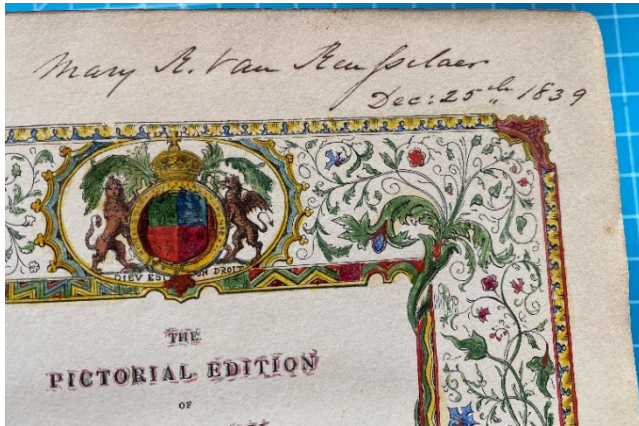 Mary R. Van Rensselaer
Dec: 25th 1839
DIEV ES ON DROIT
THE
PICTORIAL EDITION
OF